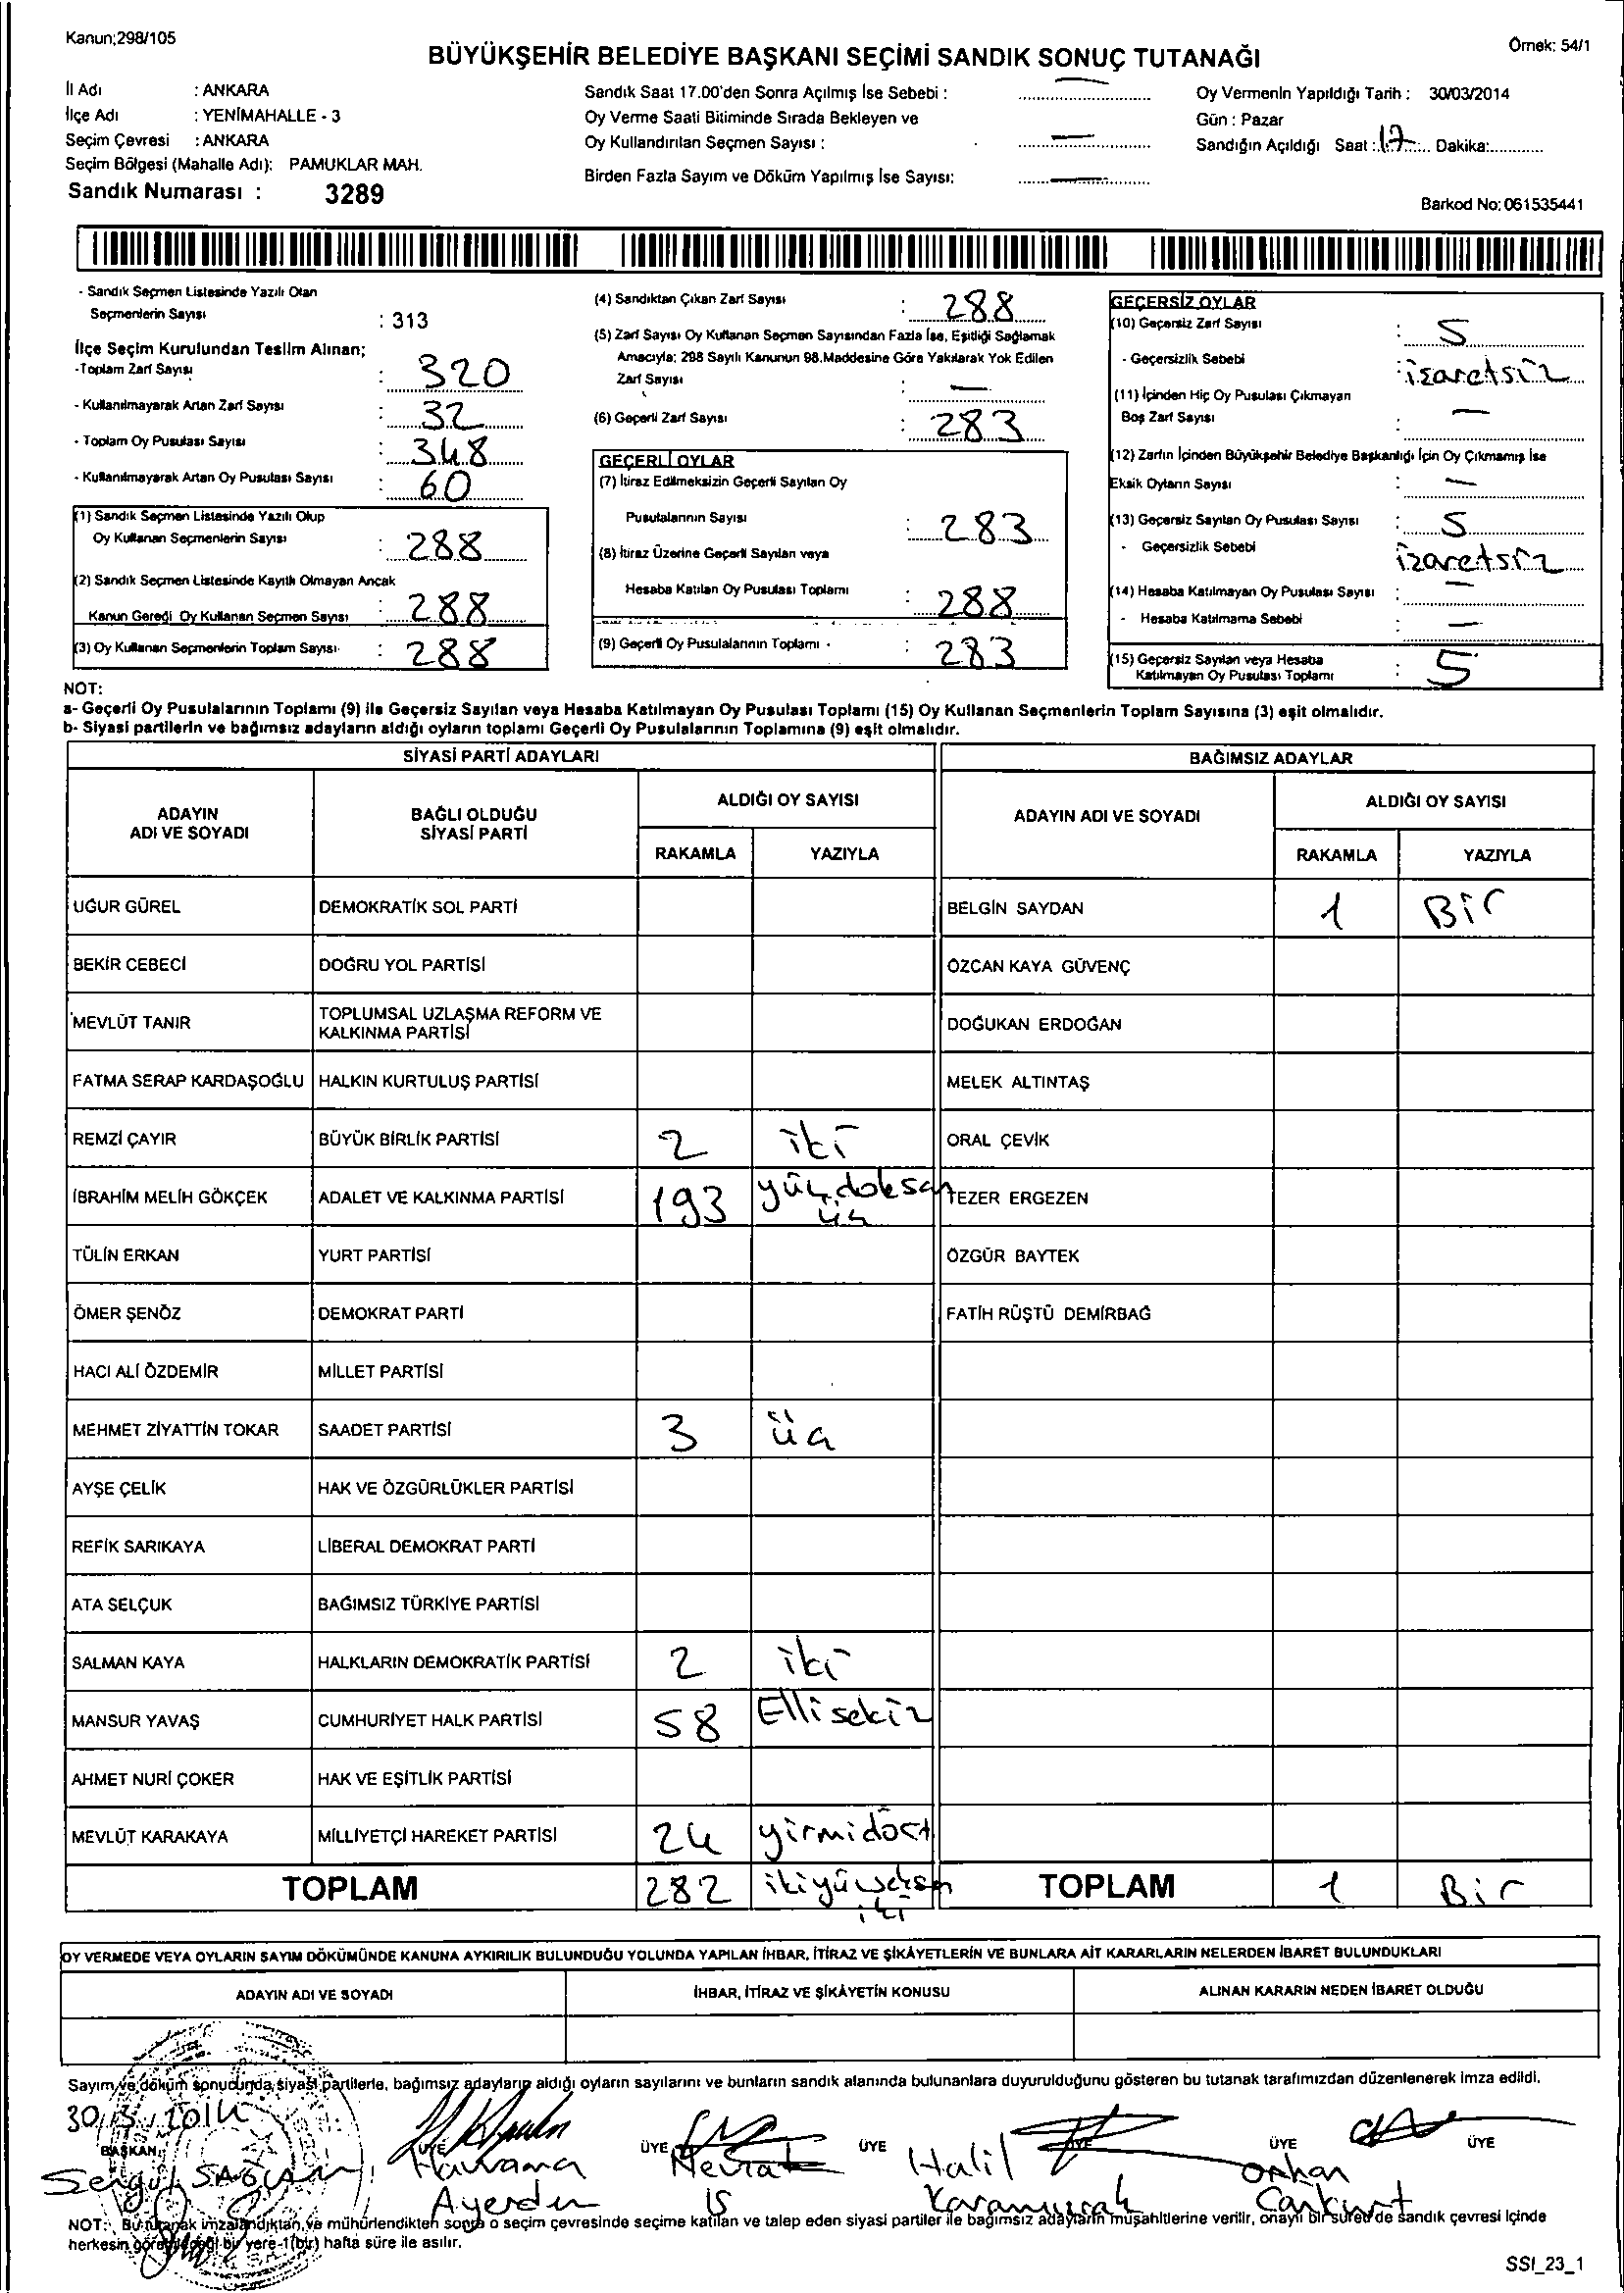 Kanun;298/105
Örnek: 54/1
BÜYÜKŞEHİR BELEDİYE BAŞKANI SEÇİMİ SANDIK SONUÇ TUTANAĞI
İl Adı : ANKARA
İlçe Adı : YENİMAHALLE - 3
Seçim Çevresi : ANKARA
Seçim Bölgesi (Mahalle Adı): PAMUKLAR MAH.
Sandık Numarası : 3289
Sandık Saat 17.00'den Sonra Açılmış İse Sebebi : —
Oy Verme Saati Bitiminde Sırada Bekleyen ve
Oy Kullandırılan Seçmen Sayısı : —
Birden Fazla Sayım ve Döküm Yapılmış İse Sayısı: —
Oy Vermenin Yapıldığı Tarih : 30/03/2014
Gün : Pazar
Sandığın Açıldığı Saat : 17 Dakika:
Barkod No: 061535441
- Sandık Seçmen Listesinde Yazılı Olan
Seçmenlerin Sayısı : 313
İlçe Seçim Kurulundan Teslim Alınan;
-Toplam Zarf Sayısı : 320
- Kullanılmayarak Artan Zarf Sayısı : 32
- Toplam Oy Pusulası Sayısı : 348
- Kullanılmayarak Artan Oy Pusulası Sayısı : 60
(1) Sandık Seçmen Listesinde Yazılı Olup
Oy Kullanan Seçmenlerin Sayısı : 288
(2) Sandık Seçmen Listesinde Kayıtlı Olmayan Ancak
Kanun Gereği Oy Kullanan Seçmen Sayısı : 288
(3) Oy Kullanan Seçmenlerin Toplam Sayısı : 288
(4) Sandıktan Çıkan Zarf Sayısı : 288
(5) Zarf Sayısı Oy Kullanan Seçmen Sayısından Fazla İse, Eşitliği Sağlamak
Amacıyla; 298 Sayılı Kanunun 98.Maddesine Göre Yakılarak Yok Edilen
Zarf Sayısı : —
(6) Geçerli Zarf Sayısı : 283
GEÇERLİ OYLAR
(7) İtiraz Edilmeksizin Geçerli Sayılan Oy
Pusulalarının Sayısı : 283
(8) İtiraz Üzerine Geçerli Sayılan veya
Hesaba Katılan Oy Pusulası Toplamı : 288
(9) Geçerli Oy Pusulalarının Toplamı : 283
GEÇERSİZ OYLAR
(10) Geçersiz Zarf Sayısı : 5
- Geçersizlik Sebebi : işaretsiz
(11) İçinden Hiç Oy Pusulası Çıkmayan
Boş Zarf Sayısı : —
(12) Zarfın İçinden Büyükşehir Belediye Başkanlığı İçin Oy Çıkmamış İse
Eksik Oyların Sayısı : —
(13) Geçersiz Sayılan Oy Pusulası Sayısı : 5
- Geçersizlik Sebebi izaretsiz
(14) Hesaba Katılmayan Oy Pusulası Sayısı : —
- Hesaba Katılmama Sebebi : —
(15) Geçersiz Sayılan veya Hesaba
Katılmayan Oy Pusulası Toplamı : 5
NOT:
a- Geçerli Oy Pusulalarının Toplamı (9) ile Geçersiz Sayılan veya Hesaba Katılmayan Oy Pusulası Toplamı (15) Oy Kullanan Seçmenlerin Toplam Sayısına (3) eşit olmalıdır.
b- Siyasi partilerin ve bağımsız adayların aldığı oyların toplamı Geçerli Oy Pusulalarının Toplamına (9) eşit olmalıdır.
SİYASİ PARTİ ADAYLARI BAĞIMSIZ ADAYLAR
ADAYIN ADI VE SOYADI BAĞLI OLDUĞU SİYASİ PARTİ ALDIĞI OY SAYISI ADAYIN ADI VE SOYADI ALDIĞI OY SAYISI
RAKAMLA YAZIYLA RAKAMLA YAZIYLA
UĞUR GÜREL DEMOKRATİK SOL PARTİ BELGİN SAYDAN 1 Bir
BEKİR CEBECİ DOĞRU YOL PARTİSİ ÖZCAN KAYA GÜVENÇ
MEVLÜT TANIR TOPLUMSAL UZLAŞMA REFORM VE KALKINMA PARTİSİ DOĞUKAN ERDOĞAN
FATMA SERAP KARDAŞOĞLU HALKIN KURTULUŞ PARTİSİ MELEK ALTINTAŞ
REMZİ ÇAYIR BÜYÜK BİRLİK PARTİSİ 2 iki ORAL ÇEVİK
İBRAHİM MELİH GÖKÇEK ADALET VE KALKINMA PARTİSİ 193 yüz doksan üç TEZER ERGEZEN
TÜLİN ERKAN YURT PARTİSİ ÖZGÜR BAYTEK
ÖMER ŞENÖZ DEMOKRAT PARTİ FATİH RÜŞTÜ DEMİRBAĞ
HACI ALİ ÖZDEMİR MİLLET PARTİSİ
MEHMET ZİYATTİN TOKAR SAADET PARTİSİ 3 üç
AYŞE ÇELİK HAK VE ÖZGÜRLÜKLER PARTİSİ
REFİK SARIKAYA LİBERAL DEMOKRAT PARTİ
ATA SELÇUK BAĞIMSIZ TÜRKİYE PARTİSİ
SALMAN KAYA HALKLARIN DEMOKRATİK PARTİSİ 2 iki
MANSUR YAVAŞ CUMHURİYET HALK PARTİSİ 58 Elli sekiz
AHMET NURİ ÇOKER HAK VE EŞİTLİK PARTİSİ
MEVLÜT KARAKAYA MİLLİYETÇİ HAREKET PARTİSİ 24 yirmidört
TOPLAM 282 ikiyüzseksen iki TOPLAM 1 Bir
OY VERMEDE VEYA OYLARIN SAYIM DÖKÜMÜNDE KANUNA AYKIRILIK BULUNDUĞU YOLUNDA YAPILAN İHBAR, İTİRAZ VE ŞİKÂYETLERİN VE BUNLARA AİT KARARLARIN NELERDEN İBARET BULUNDUKLARI
ADAYIN ADI VE SOYADI İHBAR, İTİRAZ VE ŞİKÂYETİN KONUSU ALINAN KARARIN NEDEN İBARET OLDUĞU
Sayım ve döküm sonucunda, siyasi partilerle, bağımsız adayların aldığı oyların sayılarını ve bunların sandık alanında bulunanlara duyurulduğunu gösteren bu tutanak tarafımızdan düzenlenerek imza edildi.
30/3/2014
BAŞKAN ÜYE ÜYE ÜYE ÜYE ÜYE ÜYE
Havvana Nevrat Halil Orhan
Ayerden IS Cankurt
NOT: Bu tutanak imzalandıktan ve mühürlendikten sonra o seçim çevresinde seçime katılan ve talep eden siyasi partiler ile bağımsız adayların müşahitlerine verilir, onaylı bir sureti de sandık çevresi içinde
herkesin görebileceği bir yere 1(bir) hafta süre ile asılır.
SSI_23_1